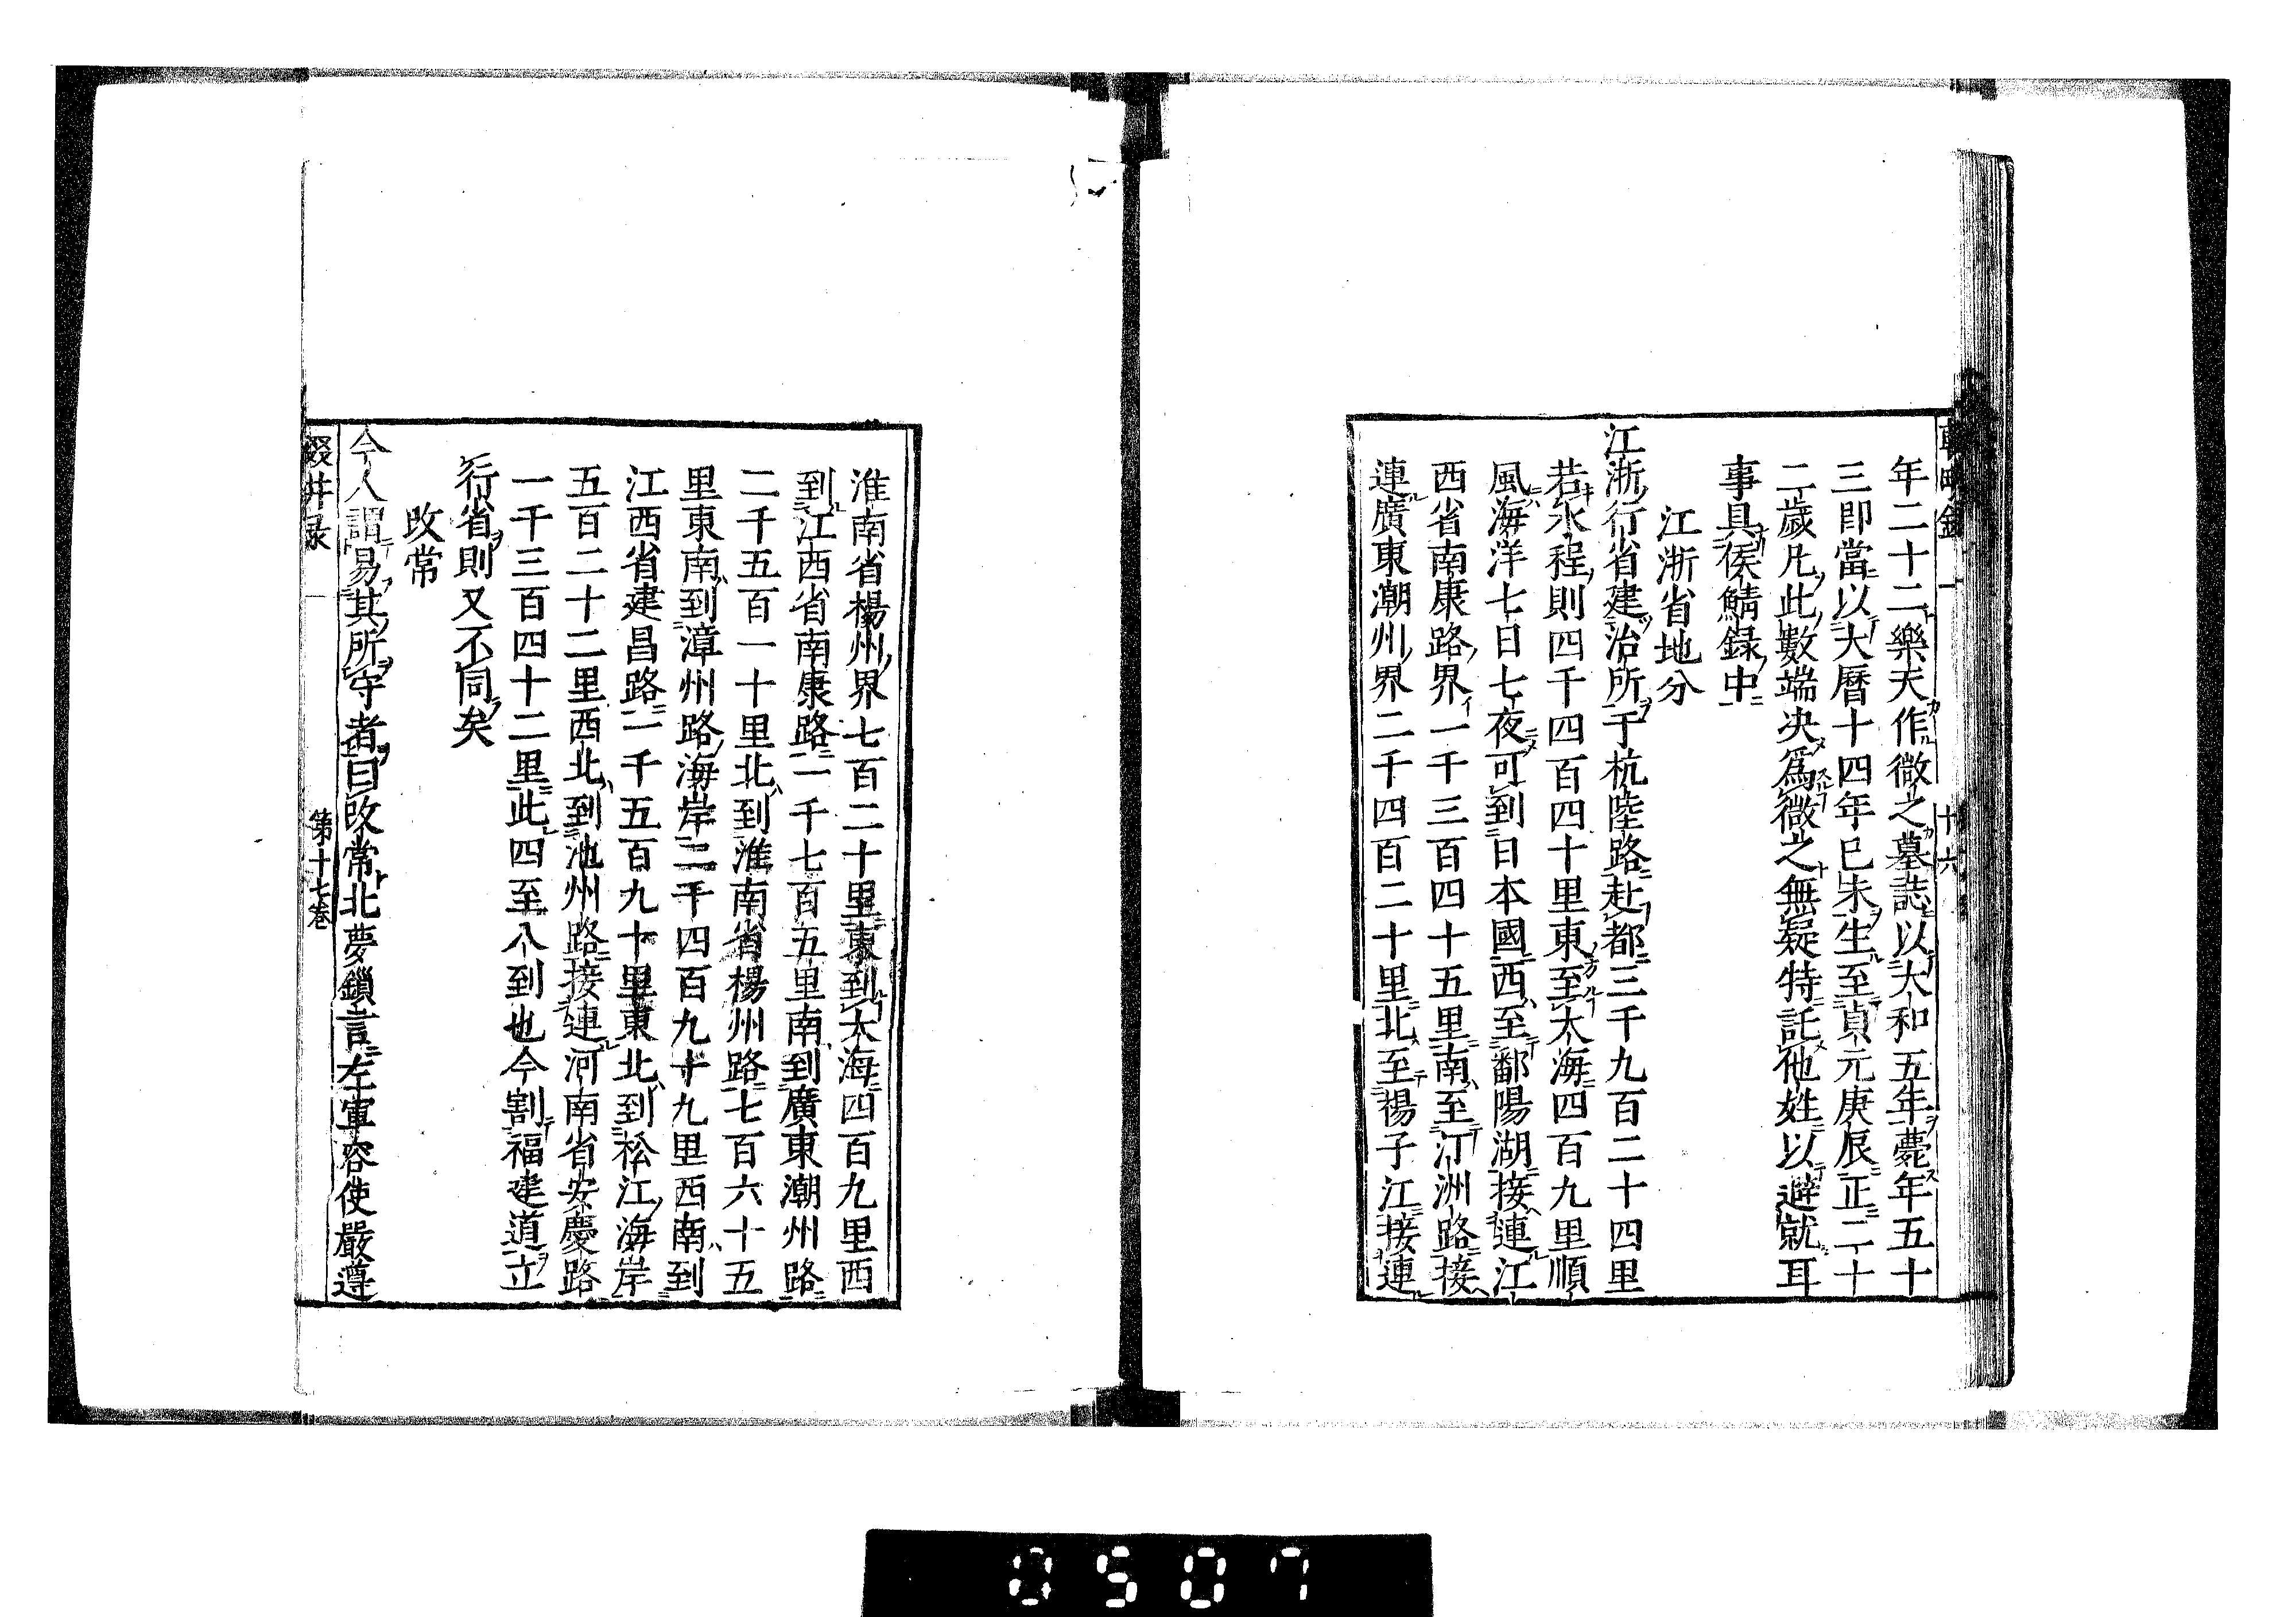 年二十二樂天作微之墓誌以大和五年薨年五十
三即當以大曆十四年已未生至貞元庚辰正二十
二歳凡此數端决爲微之無疑特託他姓以避就耳
事具侯鯖録中
江浙省地分
江浙行省建治所于杭陸路赴都三千九百二十四里
若水程則四千四百四十里東至大海四百九里順
風海洋七日七夜可到日本國西至鄱陽湖接連江
西省南康路界一千三百四十五里南至汀洲路接
連廣東潮州界二千四百二十里北至揚子江接連
淮南省楊州界七百二十里東到大海四百九里西
到江西省南康路一千七百五里南到廣東潮州路
二千五百一十里北到淮南省楊州路七百六十五
里東南到漳州路海岸二千四百九十九里西南到
江西省建昌路一千五百九十里東北到松江海岸
五百二十二里西北到池州路接連河南省安慶路
一千三百四十二里此四至八到也今割福建道立
行省則又不同矣
改常
今人謂易其所守者曰改常北夢鎻言左軍容使嚴遵
第十七卷
0507